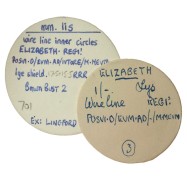 mm. 11s
wire line inner circles
ELIZABETH. REG:
POSVI·D/EVM·AD/IVTORE/M·MEVM
lge shield,
Bmwn Bust 2
701
EX: LINGFORD
ELIZABETH
1/-. Lys
Wire line REG:
POSVI·D/EVM·AD/-/M·MEVM
3